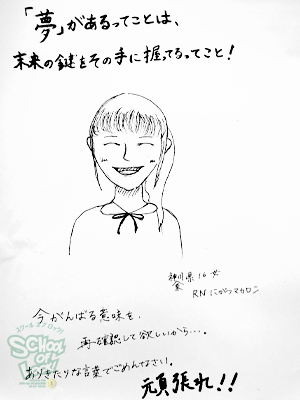 「夢」があるってことは、
未来の鍵をその手に握ってるってこと!
神奈川県 16 女
RN にがつマカロン
今がんばる意味を、
再確認して欲しいから…。
ありきたりな言葉でごめんなさい。
頑張れ!!
スクール オブ ロック!
SCHOOL
OF